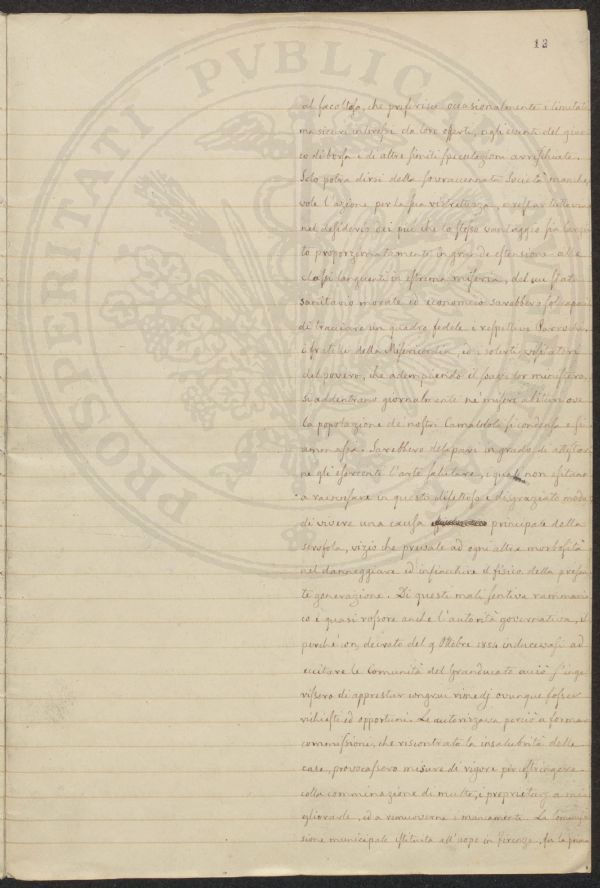 13
al facoltoso, che preferisce occasionalmente i limitati
ma sicuri interessi da loro offerti, agli eventi del giuo-
co di borsa e di altre simili speculazioni arrischiate.
Solo potrà dirsi della sovraccennata Società manche-
vole l'azione per la sua ristrettezza, e restar tuttavia
nel desiderio dei più che lo stesso vantaggio sia
to proporzionatamente in grande estensione alle
classi languenti in estrema miseria, del cui stato
sanitario morale ed economico sarebbero sol capaci
di tracciare un quadro fedele i rispettivi Parrochi,
i fratelli della Misericordia, ed i solerti visitatori
del povero, che adempiendo il loro ministero,
si addentrano giornalmente ne' miseri abituri ove
la popolazione de' nostri Camaldoli si condensa e si
ammassa. Sarebbero del pari in grado di attestar-
ne gli esercenti l'arte salutare, i quali non esitano
a ravvisare in questo difettoso e disgraziato modo
di vivere una causa principale della
scrofola, vizio che prevale ad ogni altra morbosità
nel danneggiare ed infiacchire il fisico della presen-
te generazione. Di questi mali sentiva rammari-
co e quasi rossore anche l'autorità governativa, e
perché con decreto del 9 Ottobre 1854 inducevasi ad
eccitare le Comunità del Granducato acciò s'inge-
rissero di apprestar congrui rimedj ovunque fosser
richiesti ed opportuni. Le autorizzava perciò a formar
commissione, che riscontrata la insalubrità delle
case, provocassero misure di rigore per costringere
colla comminazione di multe, i proprietarj a mi-
gliorarle, ed a rimuoverne i mancamenti. La Commis-
sione municipale istituita all'uopo in Firenze, fu la prima